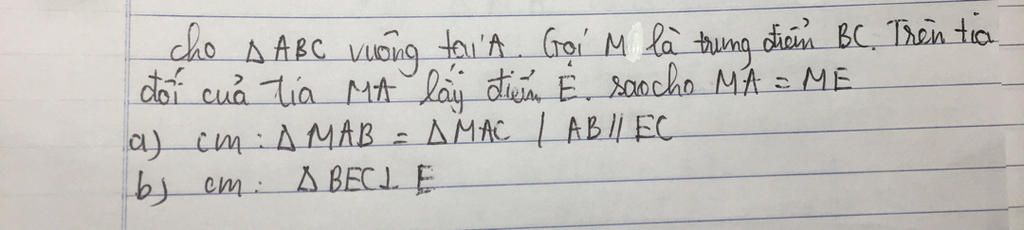 cho Δ ABC vuông tại A. Gọi M là trung điểm BC. Trên tia
đối của tia MA lấy điểm E. sao cho MA = ME
a) cm : Δ MAB = Δ MAC / AB // EC
b) cm : Δ BEC ⊥ E